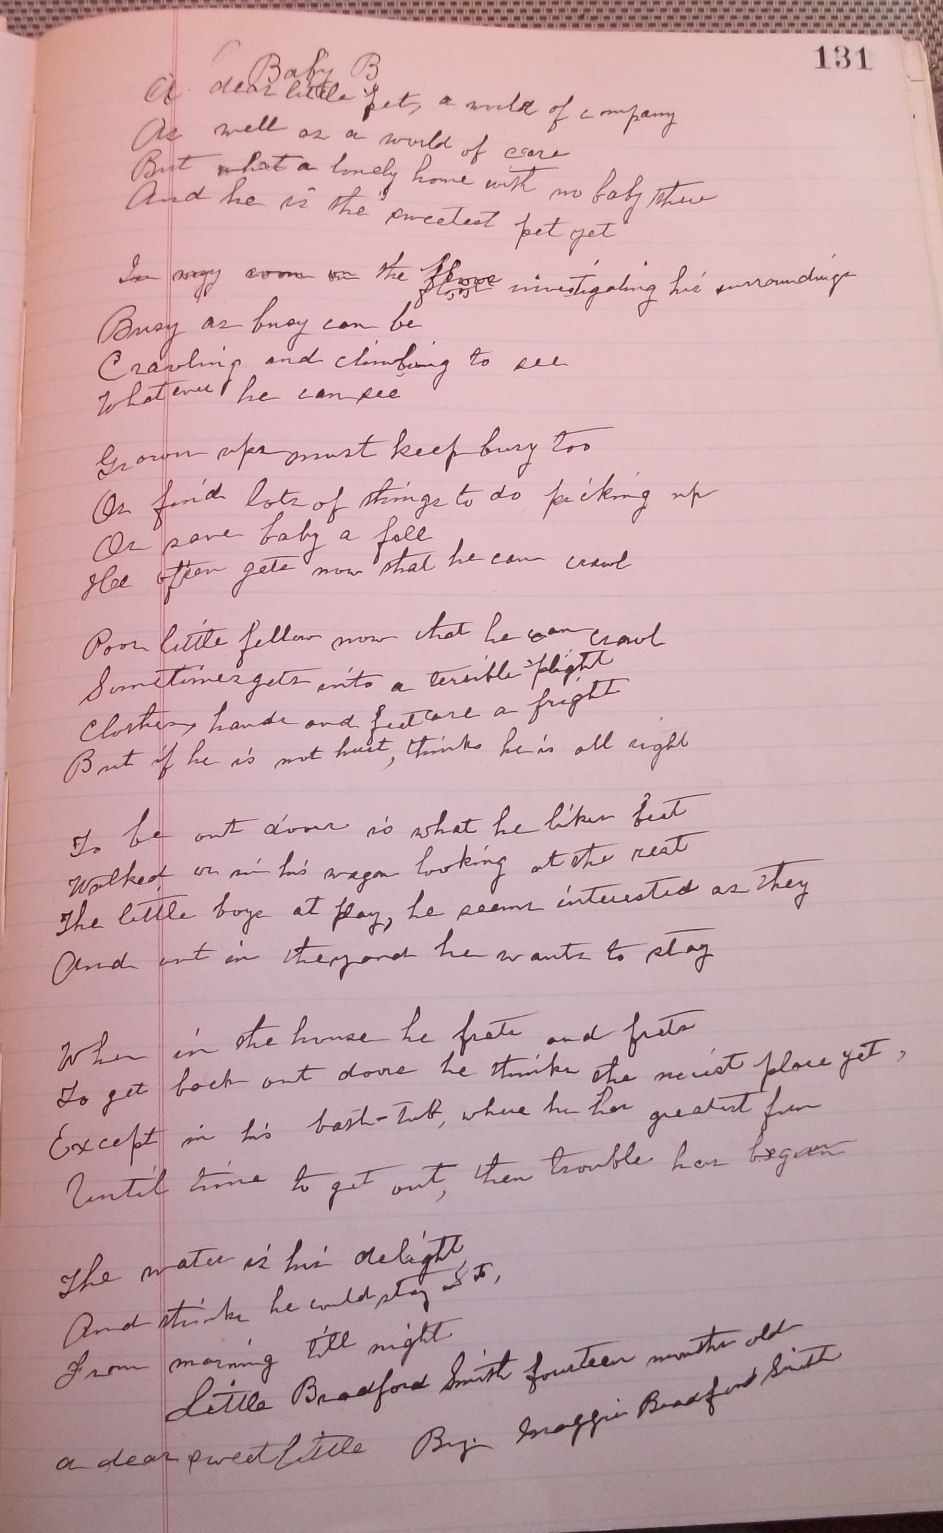 131
Baby B
A dear little Pet, a world of company
As well as a world of care
But what a lonely home with no baby there
And he is the sweetest pet yet
In my room on the floor investigating his surroundings
Busy as busy can be
Crawling and climbing to see
Whatever he can see
Grown ups must keep busy too
Or find lots of things to do picking up
Or save baby a fall
He often gets now that he can crawl
Poor little fellow now that he can crawl
Sometimes gets into a terrible plight
Clothes, hands and feet are a fright
But if he is not hurt, thinks he is all right
To be out doors is what he likes best
Walked or in his wagon looking at the rest
The little boys at play, he seems interested as they
And out in the yard he wants to stay
When in the house he frets and frets
To get back out doors he thinks the nicist place yet,
Except in his bath-tub, where he has greatest fun
Until time to get out, then trouble has began
The water is his delight
And thinks he could stay
From morning till night
Little Bradford Smith fourteen months old
a dear sweet little By Maggie Bradford Smith